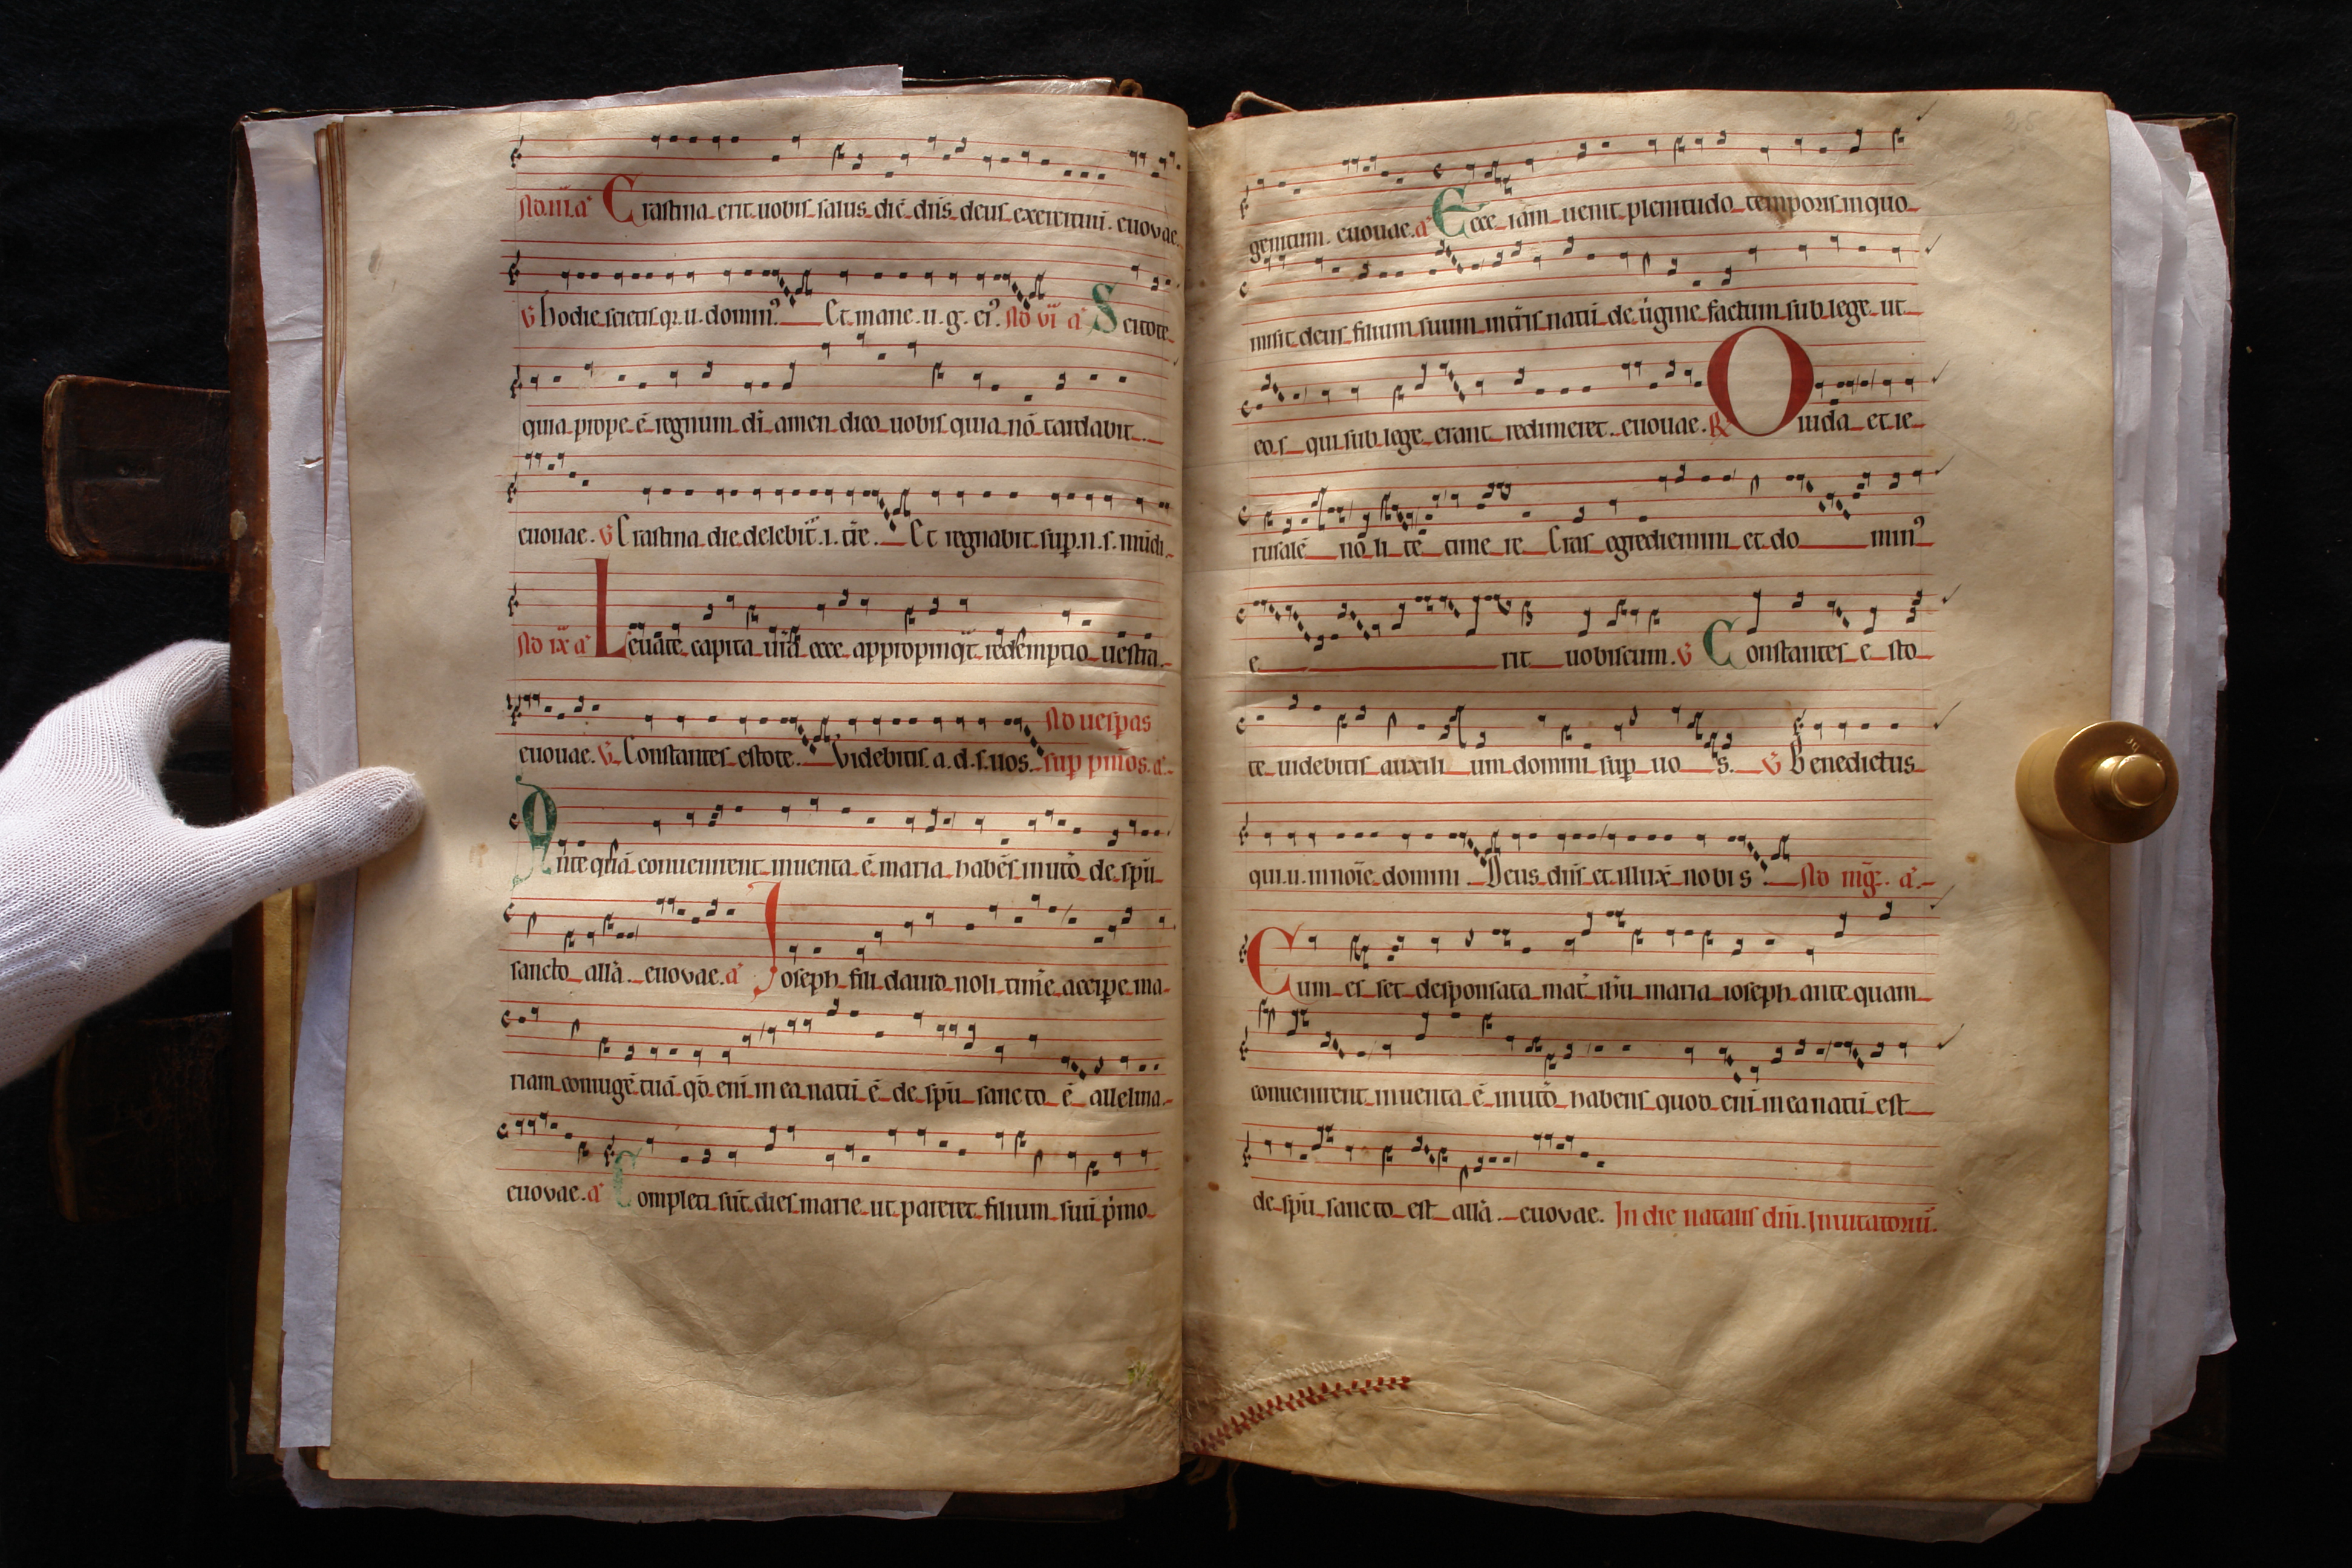 Ad .iii. a͛ Crastina erit uobis salus dic̄ dn̄s deus exercituū. euovae
V hodie scietis q̄r. u. domin᷒. Et mane. u. g. ei᷒. Ad vi a͛ Scitote
quia prope ē regnum dī amen dico uobis quia nō tardabit.
euouae. V Crastina die delebit᷑. i. t͛re. Et regnabit sup. n. s. mūdi
Ad ix a͛ Leuate capita ur̄a ecce appropinq̄t redemptio uestra.
euouae. V Constantes estote. Videbitis. a. d. s. uos. Ad uesp̄as
sup psm̄os. a͛.
Ante quā conuenirent inuenta ē maria habēs in utō de spū
sancto all̄a. euovae. a͛ Ioseph fili dauid noli tim͛e accip̄e ma
riam coniugē tuā qd̄ enī in ea natū ē de spū sancto ē alleluia.
euovae. a͛ Completi sūt dies marie ut pareret filium suū p͛mo
28
genitum. euouae. a͛ Ecce iam uenit plenitudo temporis in quo
misit deus filium suum in t͛ris natū de u͛gine factum sub lege ut
eos qui sub lege erant redimeret. euouae. R O iuda et ie
rusalē nolite timere Cras egrediemini et do min᷒
e rit uobiscum. V Constantes esto
te uidebitis auxilium domini sup uos. V Benedictus
qui. u. in noīe domini Deus dn̄s et illux̄ nobis. Ad mḡ. a͛.
Cum esset desponsata mat͛ ih̄u maria ioseph ante quam
conuenirent inuenta ē in utō habens quod enī in ea natū est
de spū sancto est all̄a. euovae. In die natalis dn̄i. Inuitatoriū.